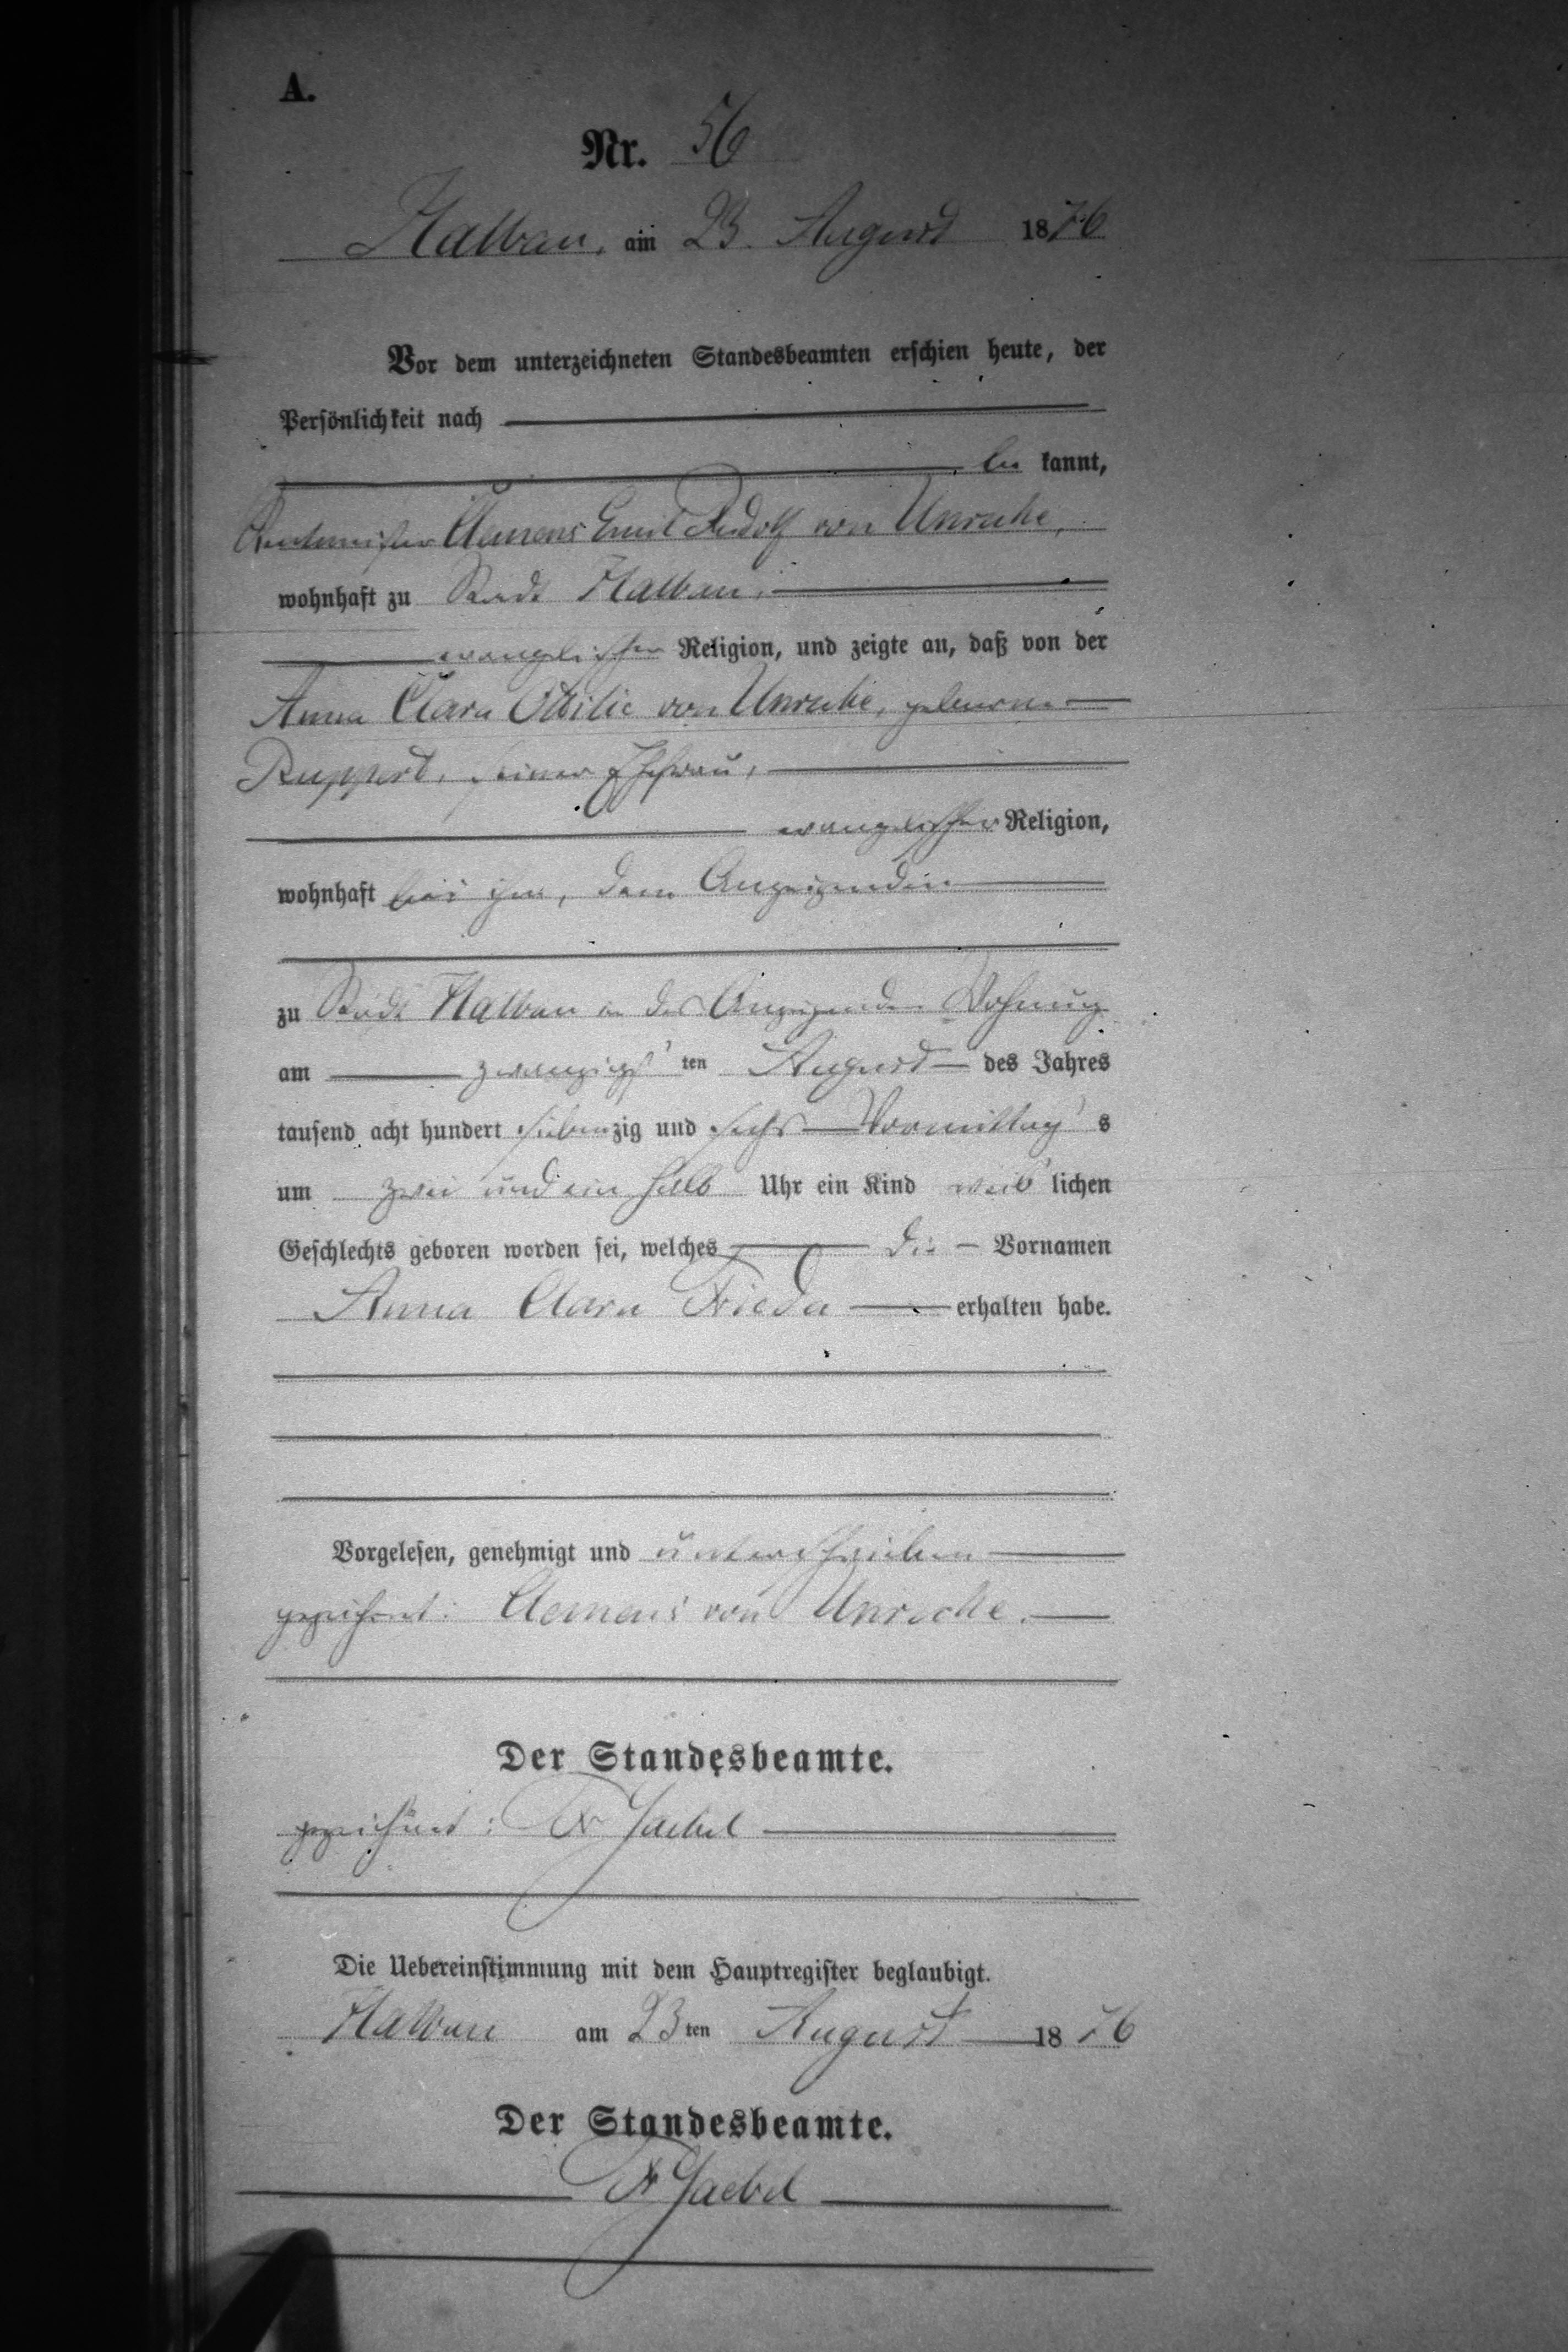 A.
Nr. 56
Halbau, am 23. August 1876
Vor dem unterzeichneten Standesbeamten erschien heute, der
Persönlichkeit nach
be kannt,
Rentmeister Clemens Emil Rudolf von Unruhe,
wohnhaft zu Stadt Halbau,
evangelischer Religion, und zeigte an, daß von der
Anna Clara Ottilie von Unruhe, geborene
Ruppert, seiner Ehefrau,
evangelischer Religion,
wohnhaft bei ihm, dem Anzeigenden
zu Stadt Halbau in des Anzeigenden Wohnung
am zwanzigsten August des Jahres
tausend acht hundert siebenzig und sechs Vormittags
um zwei und ein halb Uhr ein Kind weiblichen
Geschlechts geboren worden sei, welches die Vornamen
Anna Clara Frieda erhalten habe.
Vorgelesen, genehmigt und unterschrieben
gezeichnet: Clemens von Unruhe.
Der Standesbeamte.
gezeichnet: Jaebel
Die Uebereinstimmung mit dem Hauptregister beglaubigt.
Halbau am 23ten August 1876
Der Standesbeamte.
Jaebel